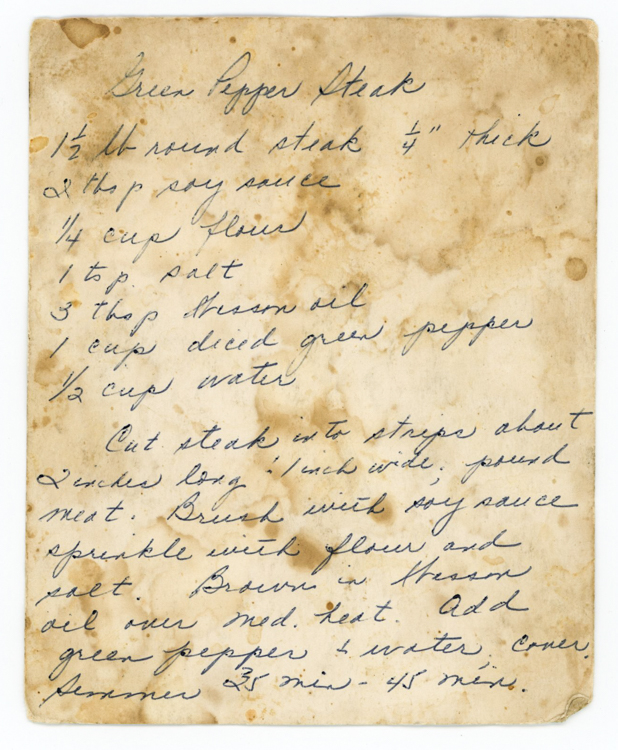 Green Pepper Steak
1 1/2 lb round steak 1/4" thick
2 tbsp soy sauce
1/4 cup flour
1 tsp. salt
3 tbsp Wesson oil
1 cup diced green pepper
1/2 cup water
Cut steak into strips about
2 inches long 1 inch wide, pound
meat. Brush with soy sauce
sprinkle with flour and
salt. Brown in Wesson
oil over med. heat. Add
green pepper & water, cover.
Simmer 35 min - 45 min.